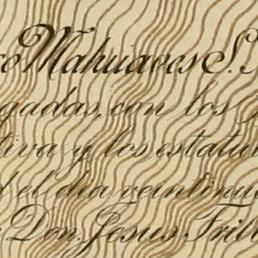 ro Mahuaves S.
gadas, con los
tiva y los estatu
el dia veintinu
Don Jesus Trill